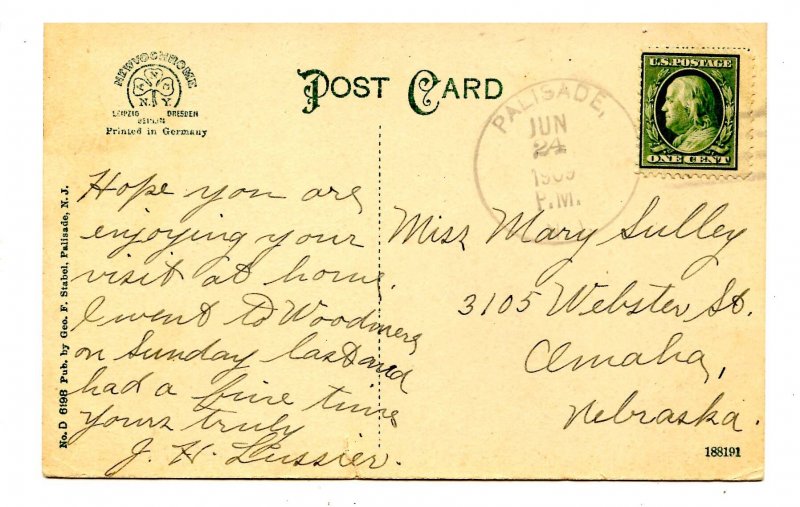 NEWVOCHROME
A N C
N. Y.
LEIPZIG DRESDEN
BERLIN
Printed in Germany
POST CARD
PALISADE,
JUN
24
1909
P.M.
U.S. POSTAGE
ONE CENT
No. D 6198 Pub. by Geo. F. Stabel, Palisade, N. J.
Hope you are
enjoying your
visit at home
I went to Woodmere
on Sunday last and
had a fine time
Yours truly
J. H. Lussier.
Miss Mary Sulley
3105 Webster St.
Omaha,
Nebraska.
188191